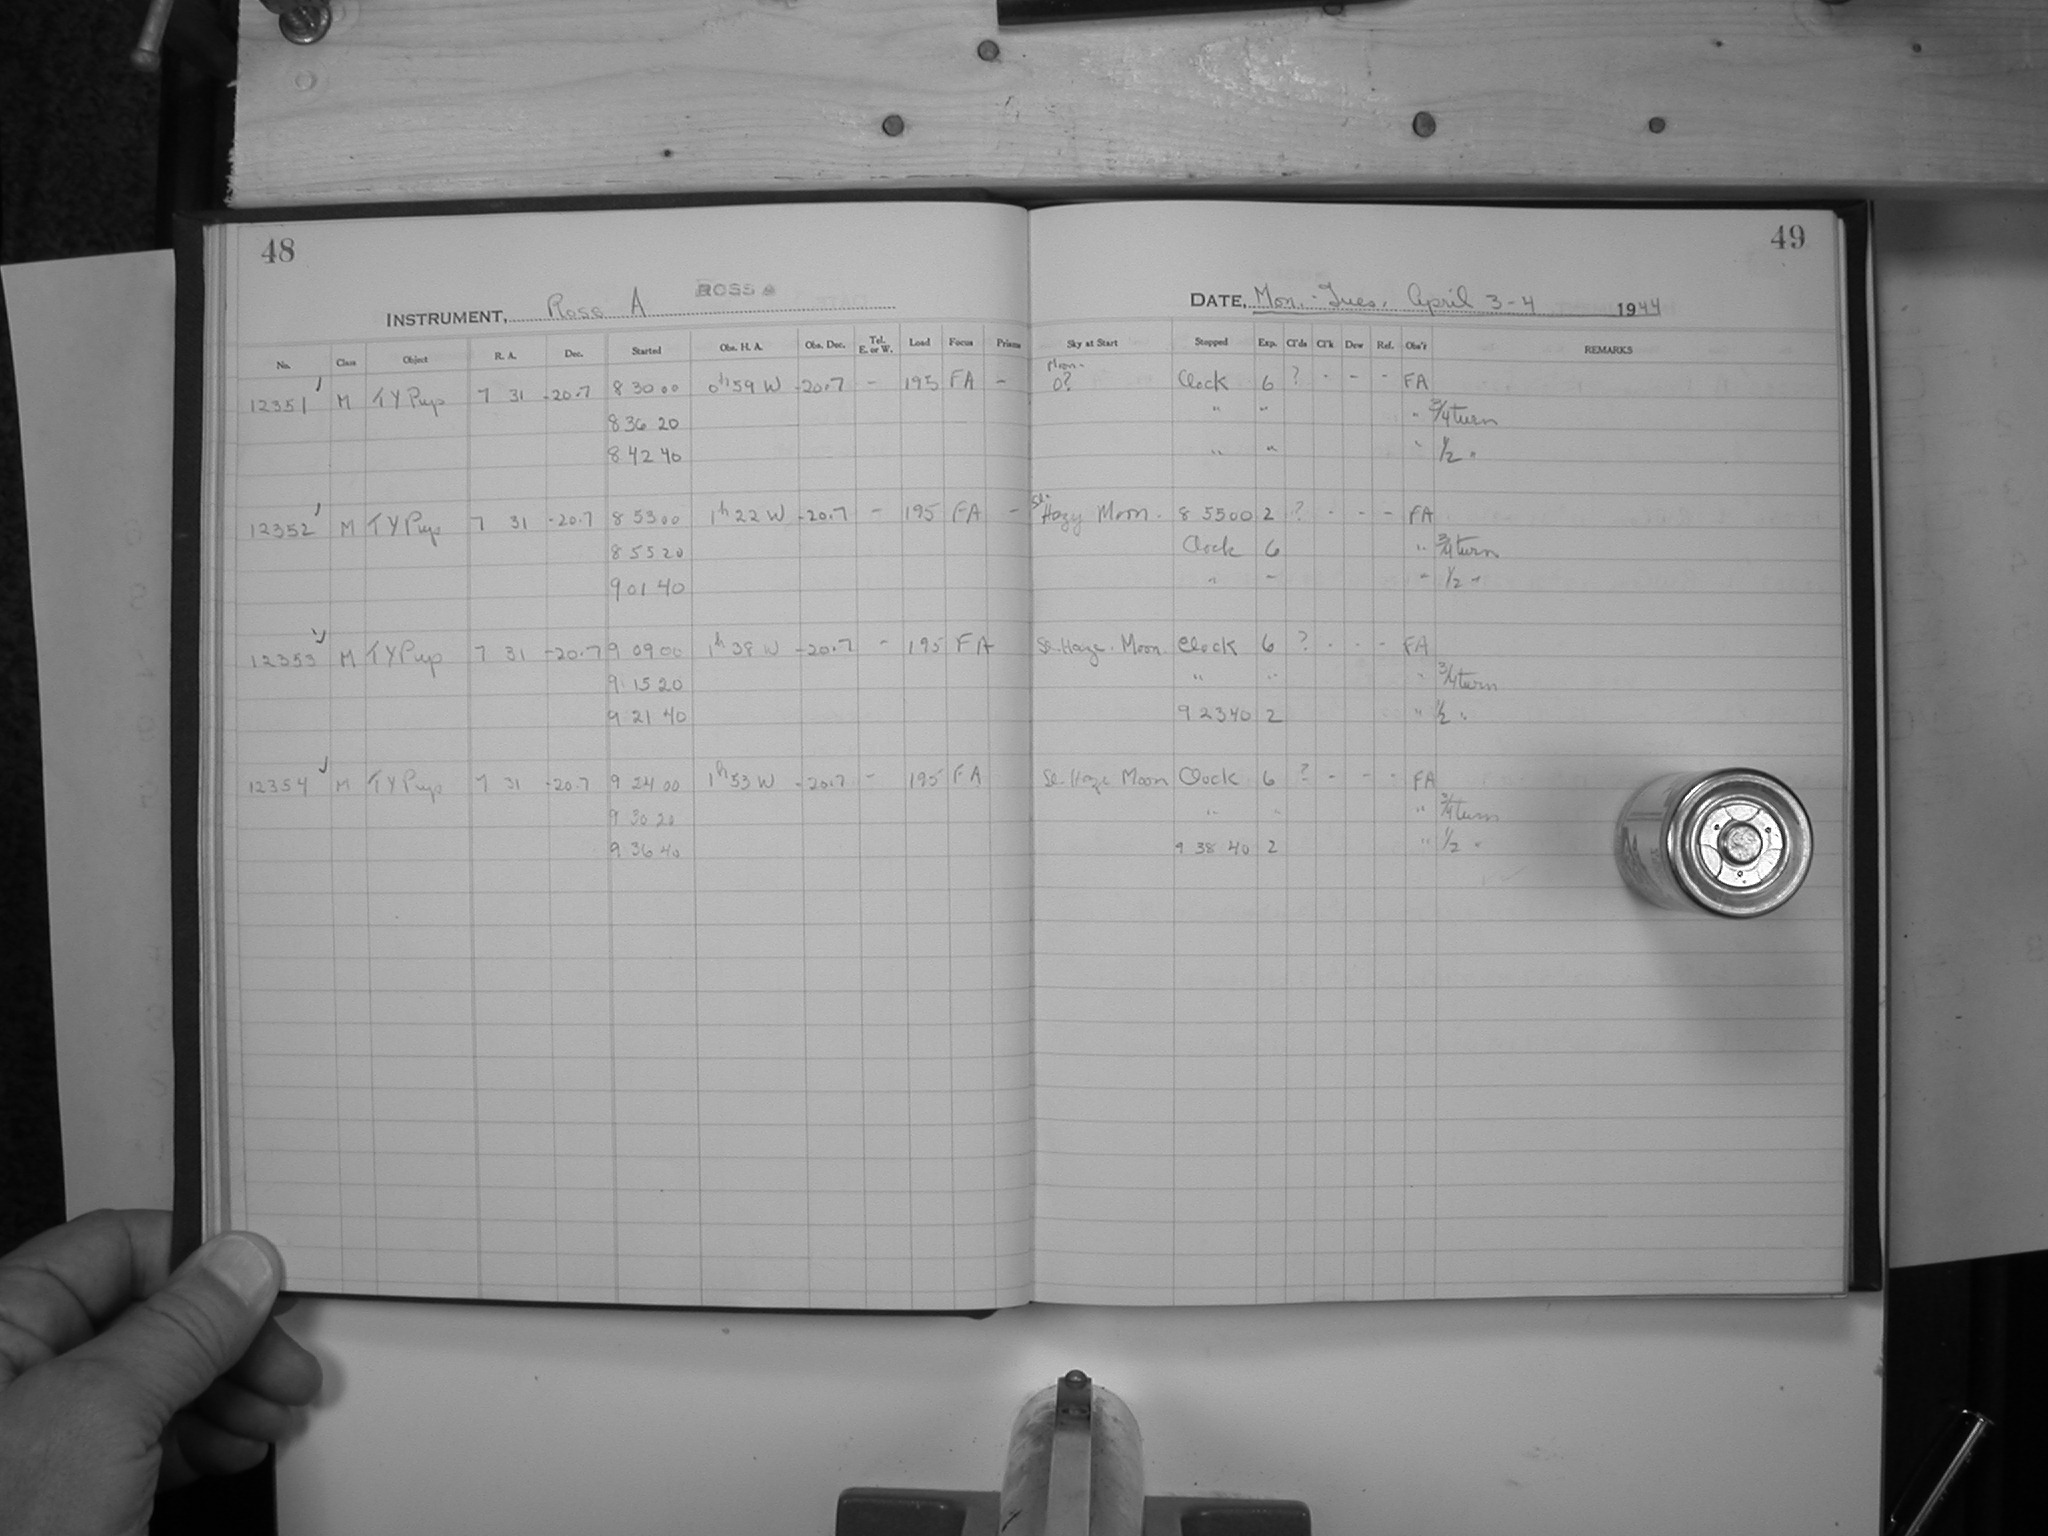 48
49
ROSS
INSTRUMENT, Ross A
DATE, Mon.-Tues. April 3-4 1944
No. Class Object R. A. Dec. Started Obs. H. A. Obs. Dec. Tel. E. or W. Load Focus Prisms Sky at Start Stopped Exp. Cl'ds Cl'k Dew Ref. Obs'r REMARKS
12351 M TY Pup 7 31 -20.7 8 30 00 0h 59 W -20.7 - 195 FA - Moon- 0? Clock 6 ? - - - FA
8 36 20 " " " 3/4 turn
8 42 40 " " " 1/2 "
12352 M TY Pup 7 31 -20.7 8 53 00 1h 22 W -20.7 - 195 FA - Sl. Hazy Moon. 8 55 00 2 ? - - - FA
8 55 20 Clock 6 " 3/4 turn
9 01 40 " " " 1/2 "
12353 M TY Pup 7 31 -20.7 9 09 00 1h 38 W -20.7 - 195 FA Sl. Haze. Moon. Clock 6 ? - - - FA
9 15 20 " " " 3/4 turn
9 21 40 9 23 40 2 " 1/2 "
12354 M TY Pup 7 31 -20.7 9 24 00 1h 53 W -20.7 - 195 FA Sl. Haze Moon Clock 6 ? - - - FA
9 30 20 " " " 3/4 turn
9 36 40 9 38 40 2 " 1/2 "